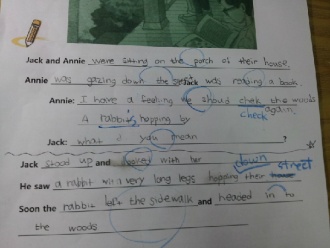 Jack and Annie were sitting on the porch of their house.
Annie was gazing down the street Jack was reading a book.
Annie: I have a feeling we should chek the woods
again.
A rabbit's hopping by check
Jack: what do you mean ?
Jack stood up and with her down street
He saw a rabbit with very long legs hopping their
Soon the rabbit left the sidewalk and headed in to
the woods